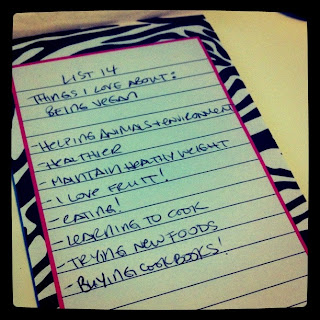 LIST 14
THINGS I LOVE ABOUT:
BEING VEGAN
- HELPING ANIMALS + ENVIRONMENT
- HEALTHIER
- MAINTAIN HEALTHY WEIGHT
- I LOVE FRUIT!
- EATING!
- LEARNING TO COOK
- TRYING NEW FOODS
- BUYING COOKBOOKS!